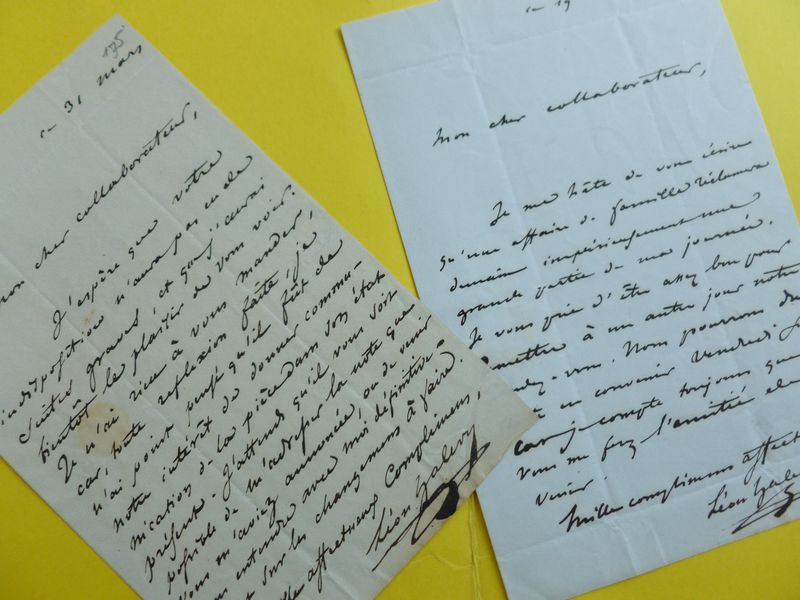 195
31 mars
mon cher collaborateur,
J'espère que votre
indisposition n'aura pas eu de
suites graves et que j'aurai
bientôt le plaisir de vous voir.
Je n'ai rien à vous mander,
car, toute réflexion faite, je
n'ai point pensé qu'il fût de
notre intérêt de donner commu-
nication de la pièce dans son état
présent. J'attends qu'il vous soit
possible de m'adresser la note que
vous m'aviez annoncée, ou de venir
vous entendre avec moi définitive-
sur les changemens à faire.
affectueux complimens,
Léon Halévy
19
Mon cher collaborateur,
Je me hâte de vous écrire
qu'une affaire de famille réclamera
demain impérieusement une
grande partie de ma journée.
Je vous prie d'être assez bon pour
remettre à un autre jour notre
rendez-vous. Nous pourrons
en convenir vendredi
car je compte toujours que
vous me ferez l'amitié de
venir.
Mille complimens affect
Léon Halévy